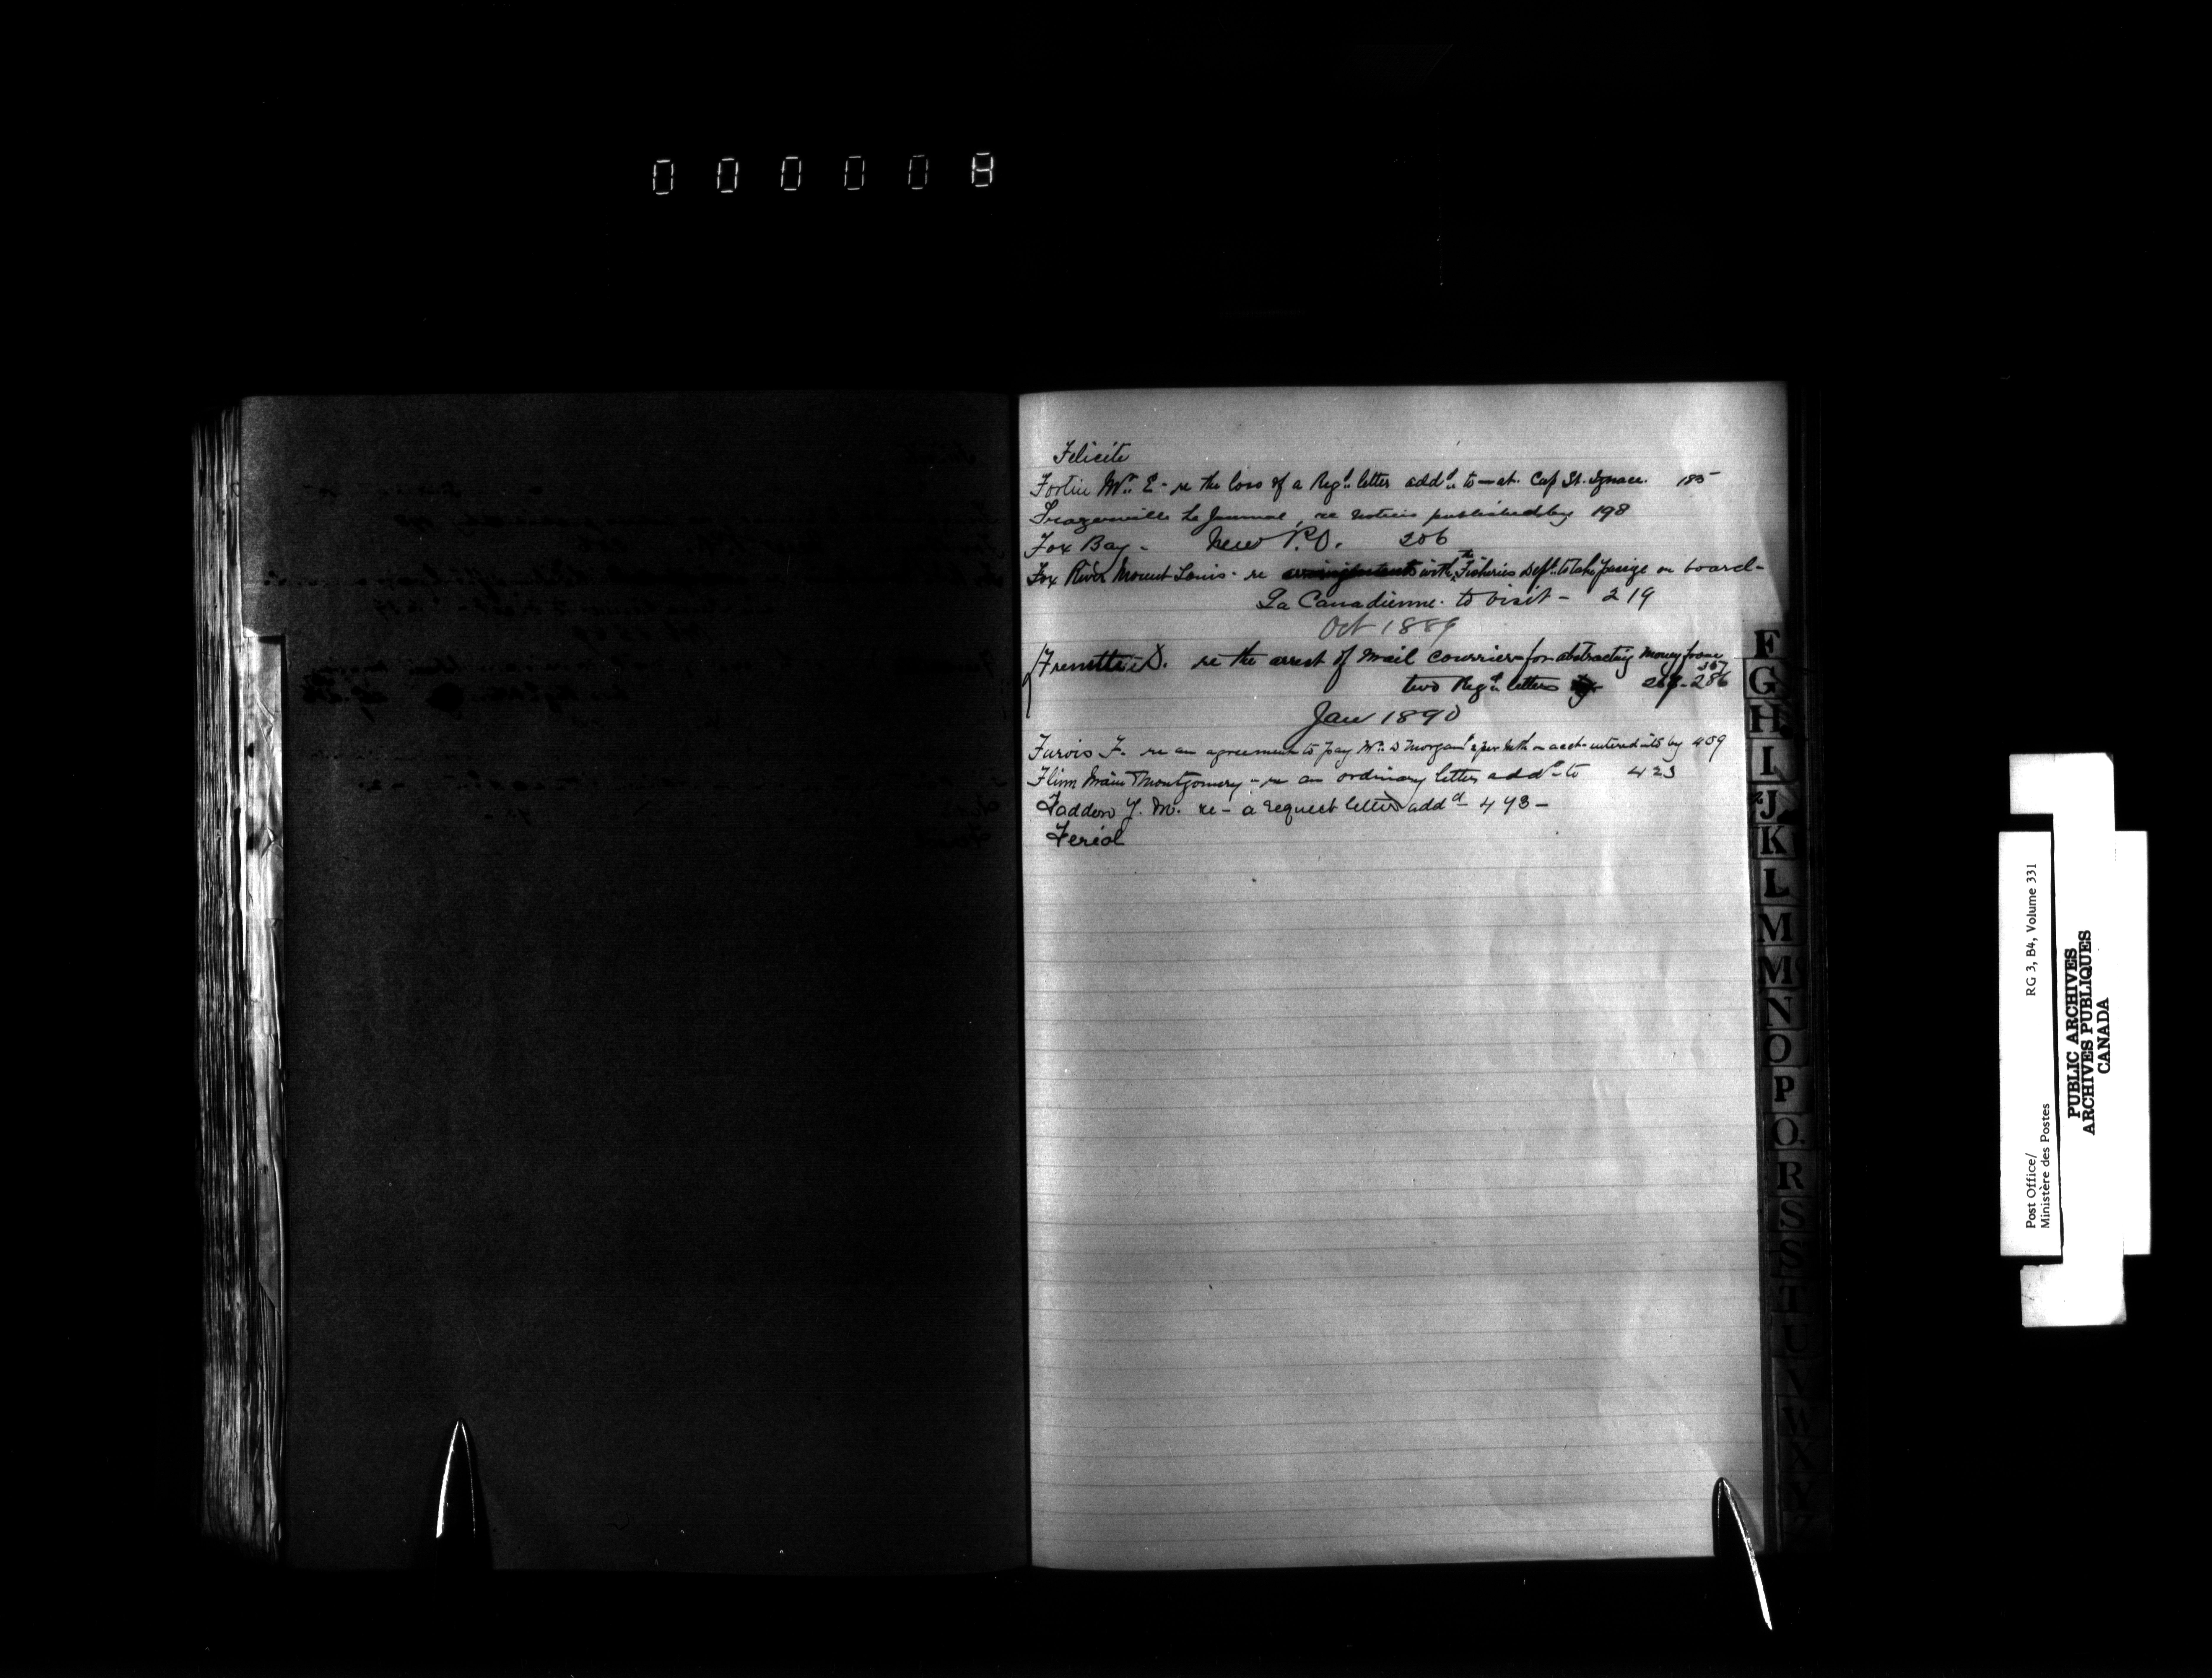 000008
Felicité
Fortin Mr. E - re the loss of a Regd. letter addd. to - at Cap St. Ignace. 185
Frazerville Le Journal, re notices published by 198
Fox Bay - New P.O. 206
Fox River Mount Louis - re with the Fisheries Dept. to take on board -
La Canadienne to visit - 219
Oct 1889
Frenette D. re the arrest of Mail Courrier for abstracting money from
two Regd. letters 286
Jan 1890
Farvis F. re an agreement to pay D Morgan on acct. entered into by 409
Flinn Main Montgomery - re an ordinary letter addd. to 423
Fadden J. M. re - a request letter addd - 493 -
Feriol
F
G
H
I
J
K
L
M
M
N
O
P
Q
R
S
S
T
U
V
W
X
Y
Post Office/ RG 3, B4, Volume 331
Ministère des Postes
PUBLIC ARCHIVES
ARCHIVES PUBLIQUES
CANADA